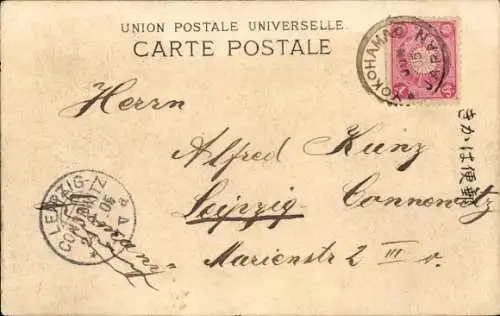 UNION POSTALE UNIVERSELLE.
CARTE POSTALE
YOKOHAMA
JAPAN
きかは便郵
Herrn
Alfred Kunz
Leipzig-Connewitz
Marienstr 2 III r.
Germany
LEIPZIG-
CONNEWITZ